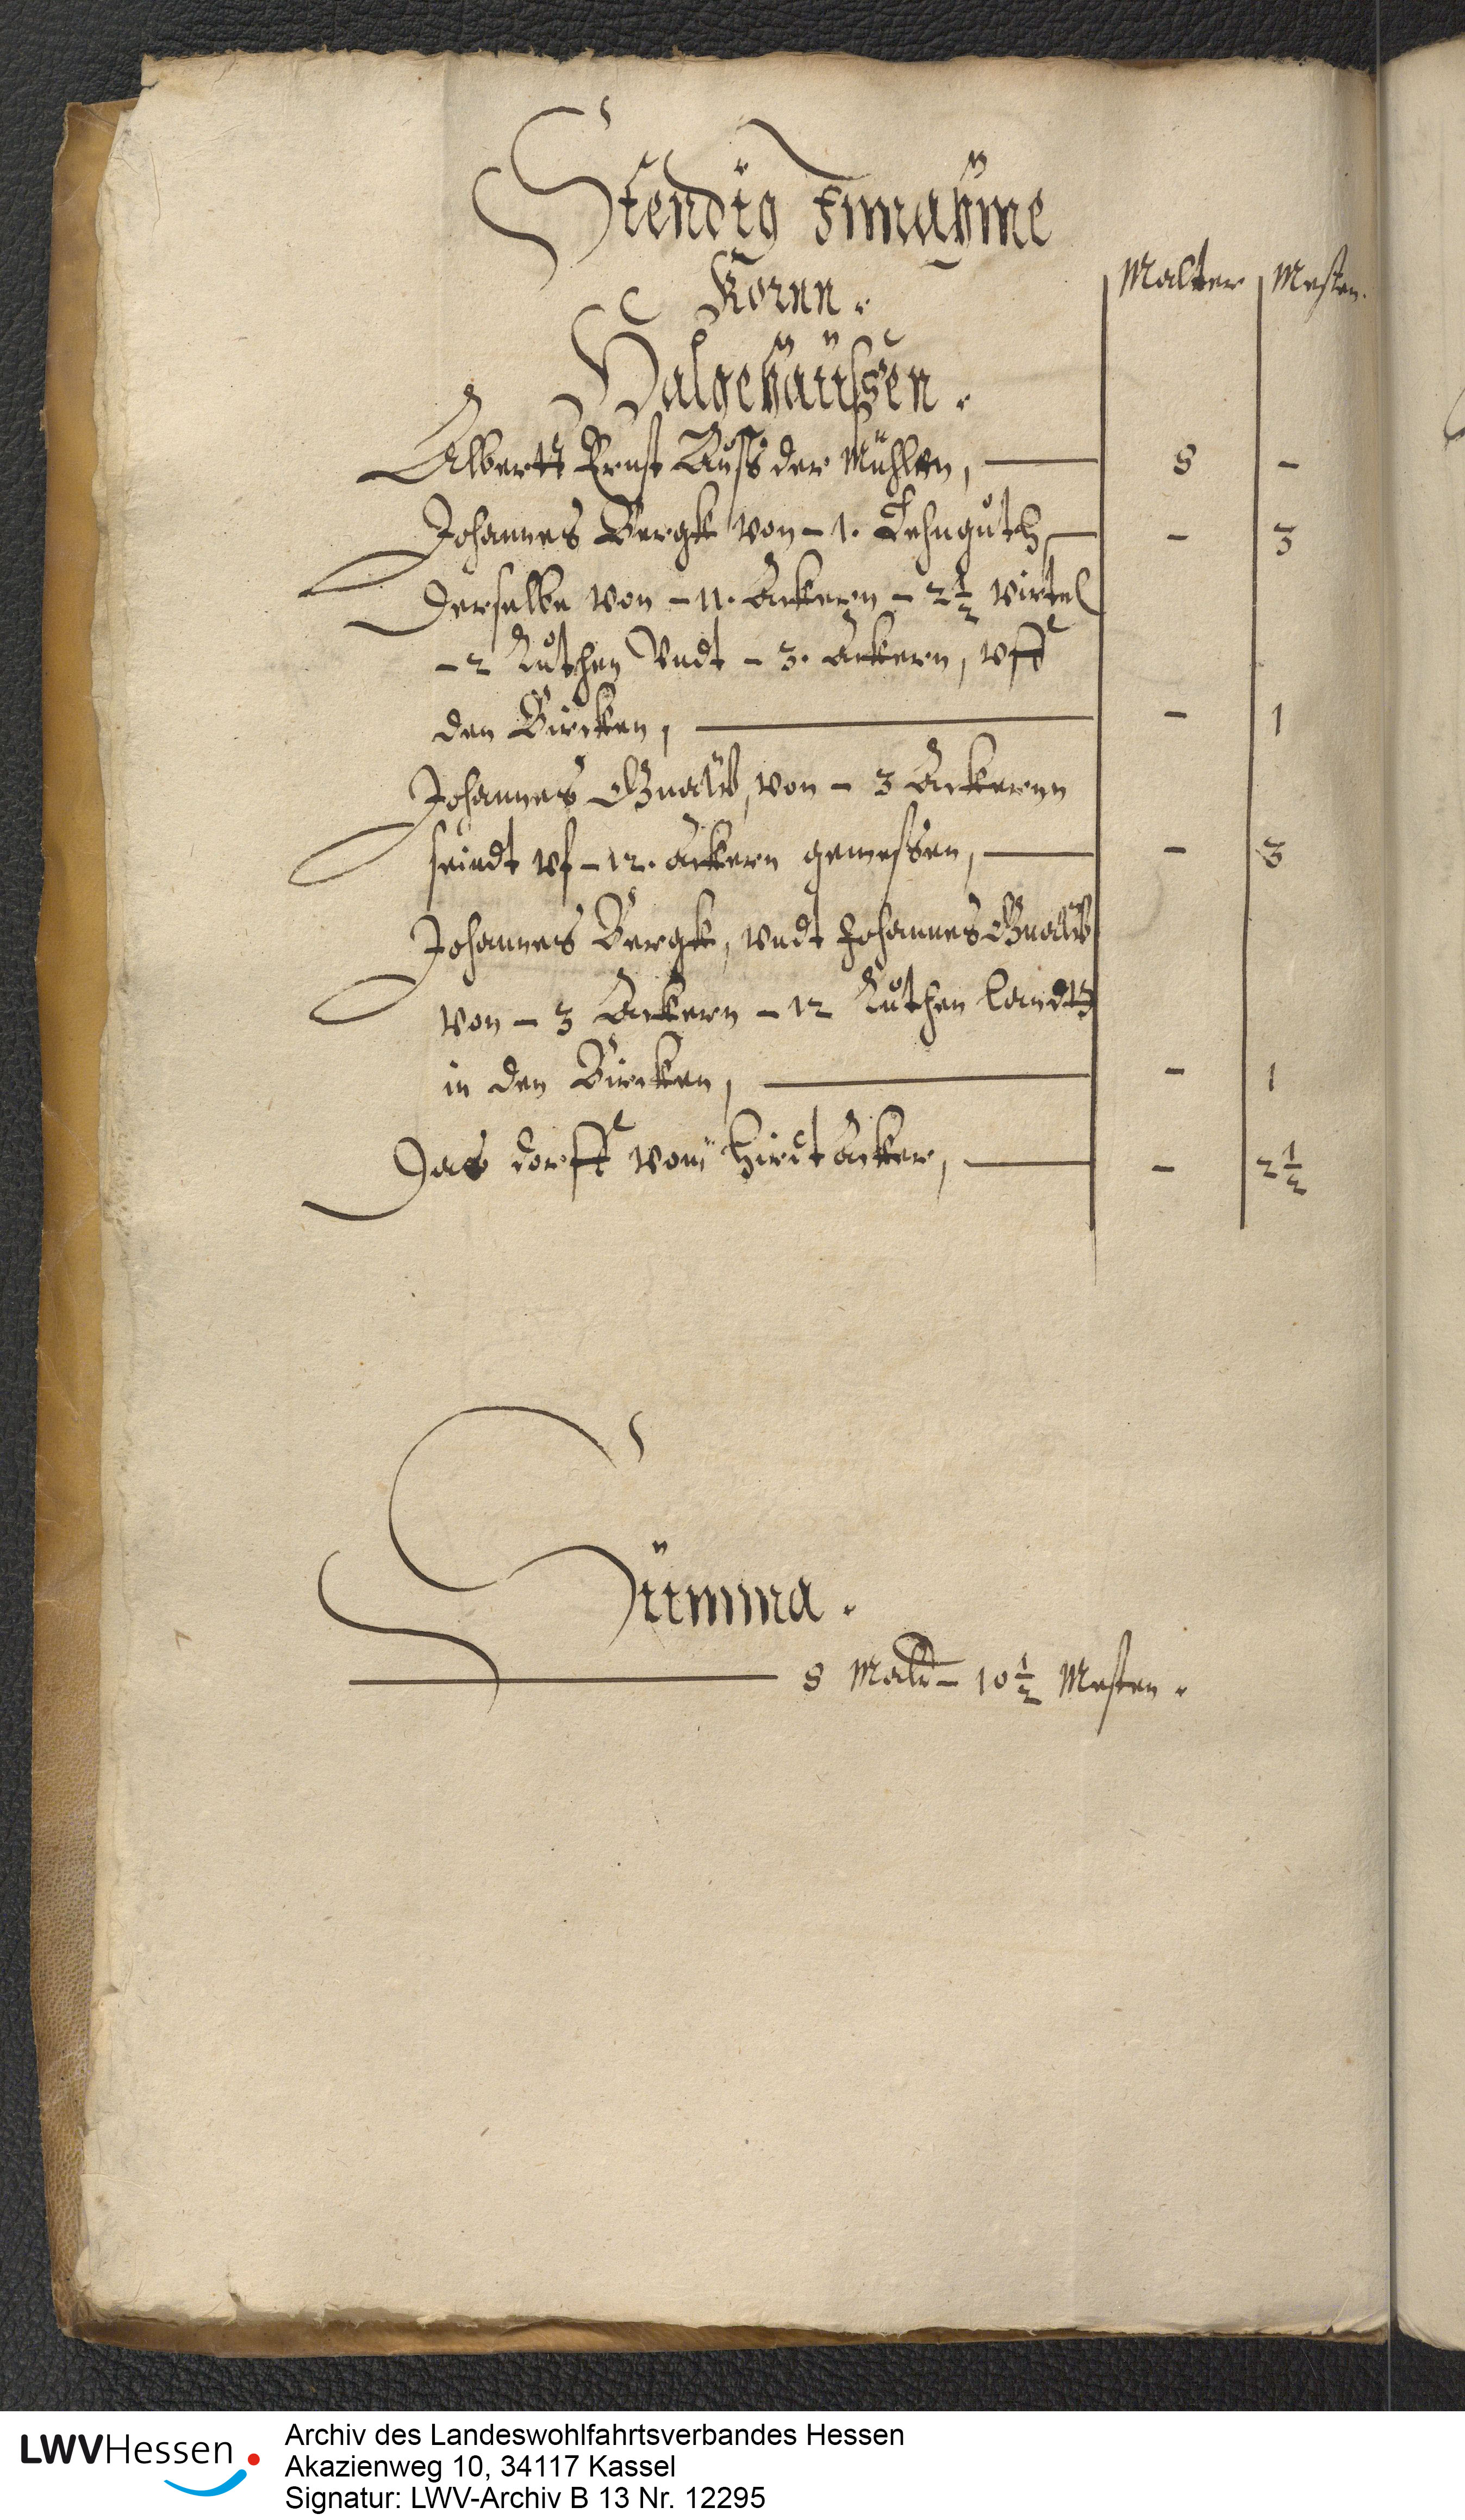 Stendig Einnahme
Kornn.
Malter Mesten.
Halgehaußen.
Albertt Ernst Auß der Mühlen, 8 -
Johannes Bergk von - 1. Lehnguth - 3
Derselbe von - 11. Ackern - 2 1/2 virtel
- 2 Ruthen Vndt - 3. Ackern, vff
den Bircken, - 1
Johannes Gnaw, von - 3 Ackernn
seindt vf - 12. Ackern gemessen, - 3
Johannes Bergk, vndt Johannes Gnaw
von - 3 Ackern - 12 Ruthen Landts
in den Bircken, - 1
Das dorff vom Hirdt Acker, - 2 1/2
Summa.
8 Maltr - 10 1/2 Mesten.
LWVHessen
Archiv des Landeswohlfahrtsverbandes Hessen
Akazienweg 10, 34117 Kassel
Signatur: LWV-Archiv B 13 Nr. 12295